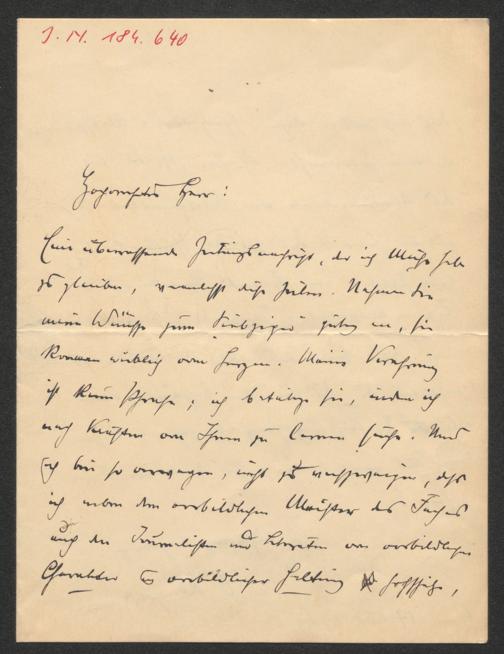 J. N. 184.640
Hochverehrter Herr:
Eine überraschende Zeitungsnachricht, der ich Mühe habe
zu glauben, veranlasst diese Zeilen. Nehmen Sie
meine Wünsche zum Siebziger gütig an, sie
kommen wirklich vom Herzen. Meine Verehrung
ist keine Phrase; ich betätige sie, indem ich
nach Kräften von Ihnen zu lernen suche. Und
ich bin so verwegen, nicht zu verschweigen, dass
ich neben dem vorbildlichen Meister des Faches
auch den Journalisten und Literaten von vorbildlichem
Charakter & vorbildlicher Haltung hochschätze,